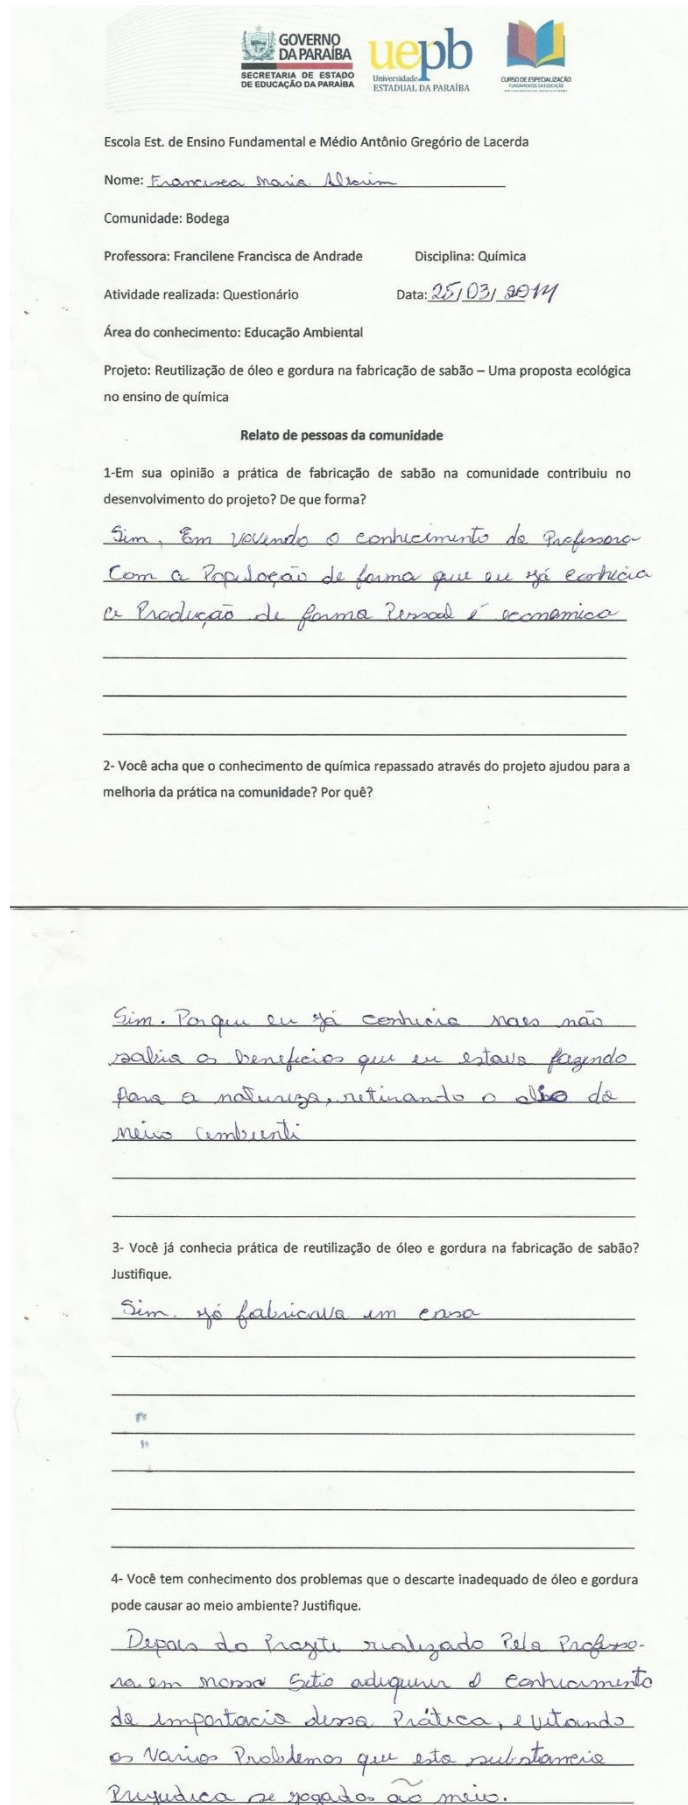 GOVERNO
DA PARAÍBA
SECRETARIA DE ESTADO
DE EDUCAÇÃO DA PARAÍBA
uepb
Universidade
ESTADUAL DA PARAÍBA
CURSO DE ESPECIALIZAÇÃO
FUNDAMENTOS DA EDUCAÇÃO
Escola Est. de Ensino Fundamental e Médio Antônio Gregório de Lacerda
Nome: Francisca Maria
Comunidade: Bodega
Professora: Francilene Francisca de Andrade Disciplina: Química
Atividade realizada: Questionário Data: 25/03/2014
Área do conhecimento: Educação Ambiental
Projeto: Reutilização de óleo e gordura na fabricação de sabão – Uma proposta ecológica
no ensino de química
Relato de pessoas da comunidade
1-Em sua opinião a prática de fabricação de sabão na comunidade contribuiu no
desenvolvimento do projeto? De que forma?
Sim, Em vovendo o conhecimento da Professora
Com a População de forma que eu já conhecia
a Produção de forma Pessoal é economica
2- Você acha que o conhecimento de química repassado através do projeto ajudou para a
melhoria da prática na comunidade? Por quê?
Sim. Porque eu já conhecia maes não
sabia os beneficios que eu estava fazendo
para a natureza, retirando o do
meio ambienti
3- Você já conhecia prática de reutilização de óleo e gordura na fabricação de sabão?
Justifique.
Sim. já fabricava em casa
4- Você tem conhecimento dos problemas que o descarte inadequado de óleo e gordura
pode causar ao meio ambiente? Justifique.
Depois do Projeto realizado Pela Professo-
ra em nosso Sitio adiquirir o conhecimento
da importacia dessa Prática, evitando
os Varios Problemas que esta substancia
Prejudica se jogados ao meio.